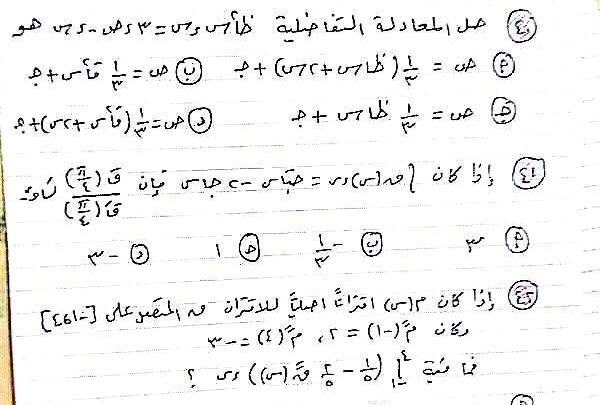 ٤٠ حل المعادلة التفاضلية ظا٢س دس = ٣ دص - دس هو
أ ص = ١/٣ (ظاس + ٢س) + جـ ب ص = ١/٣ قا٢س + جـ
ج ص = ١/٣ ظاس + جـ د ص = ١/٣ (قا٢س + ٢س) + جـ
٤١ إذا كان ∫ ق(س) دس = جتاس - ٢ جاس فإن ق(π/٤) / ق́(π/٤) تساوي
أ ٣ ب -١/٣ ج ١ د -٣
٤٢ إذا كان م(س) اقتراناً أصلياً للاقتران ق المتصل على [-١، ٤]
وكان م́(-١) = ٢، م́(٤) = -٣
فما قيمة ∫ (١/٥ - ٢/٥ ق́(س)) دس ؟